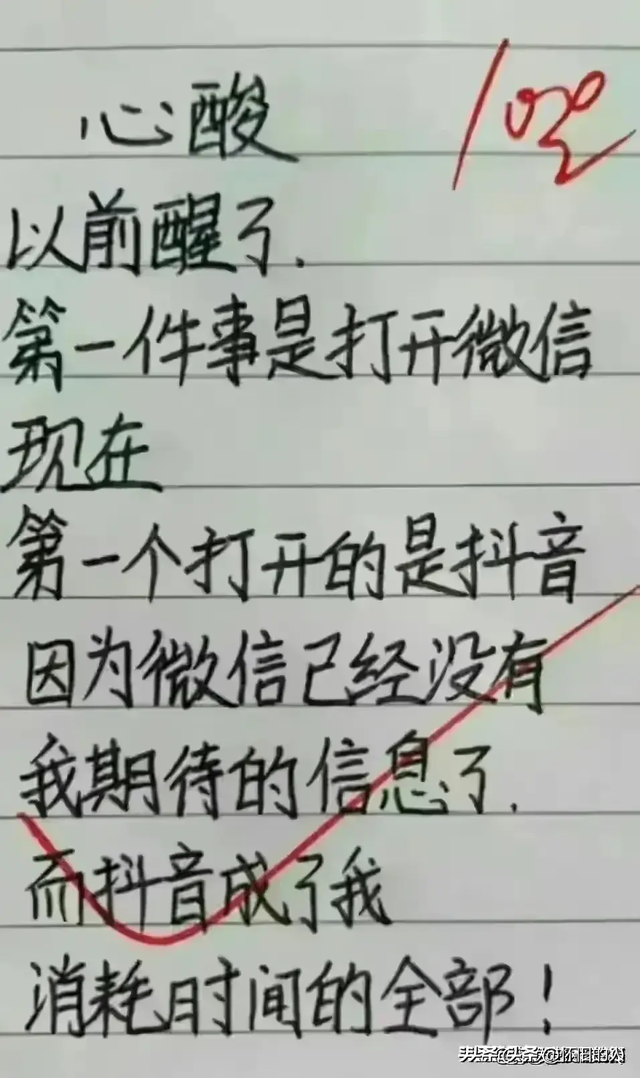 心酸
100
以前醒了.
第一件事是打开微信
现在
第一个打开的是抖音
因为微信已经没有
我期待的信息了.
而抖音成了我
消耗时间的全部!